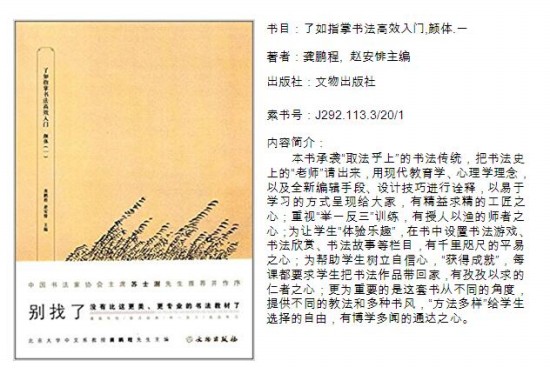 了如指掌书法高效入门 颜体（一）
龚鹏程 赵安悱 主编
中国书法家协会主席苏士澍先生推荐并作序
别找了
没有比这更美、更专业的书法教材了
北京大学中文系教授龚鹏程先生主编
文物出版社
书目：了如指掌书法高效入门,颜体.一
著者：龚鹏程, 赵安悱主编
出版社：文物出版社
索书号：J292.113.3/20/1
内容简介：
本书承袭“取法乎上”的书法传统，把书法史
上的“老师”请出来，用现代教育学、心理学理念，
以及全新编辑手段、设计技巧进行诠释，以易于
学习的方式呈现给大家，有精益求精的工匠之
心；重视“举一反三”训练，有授人以渔的师者之
心；为让学生“体验乐趣”，在书中设置书法游戏、
书法欣赏、书法故事等栏目，有千里咫尺的平易
之心；为帮助学生树立自信心，“获得成就”，每
课都要求学生把书法作品带回家，有孜孜以求的
仁者之心；更为重要的是这套书从不同的角度，
提供不同的教法和多种书风，“方法多样”给学生
选择的自由，有博学多闻的通达之心。